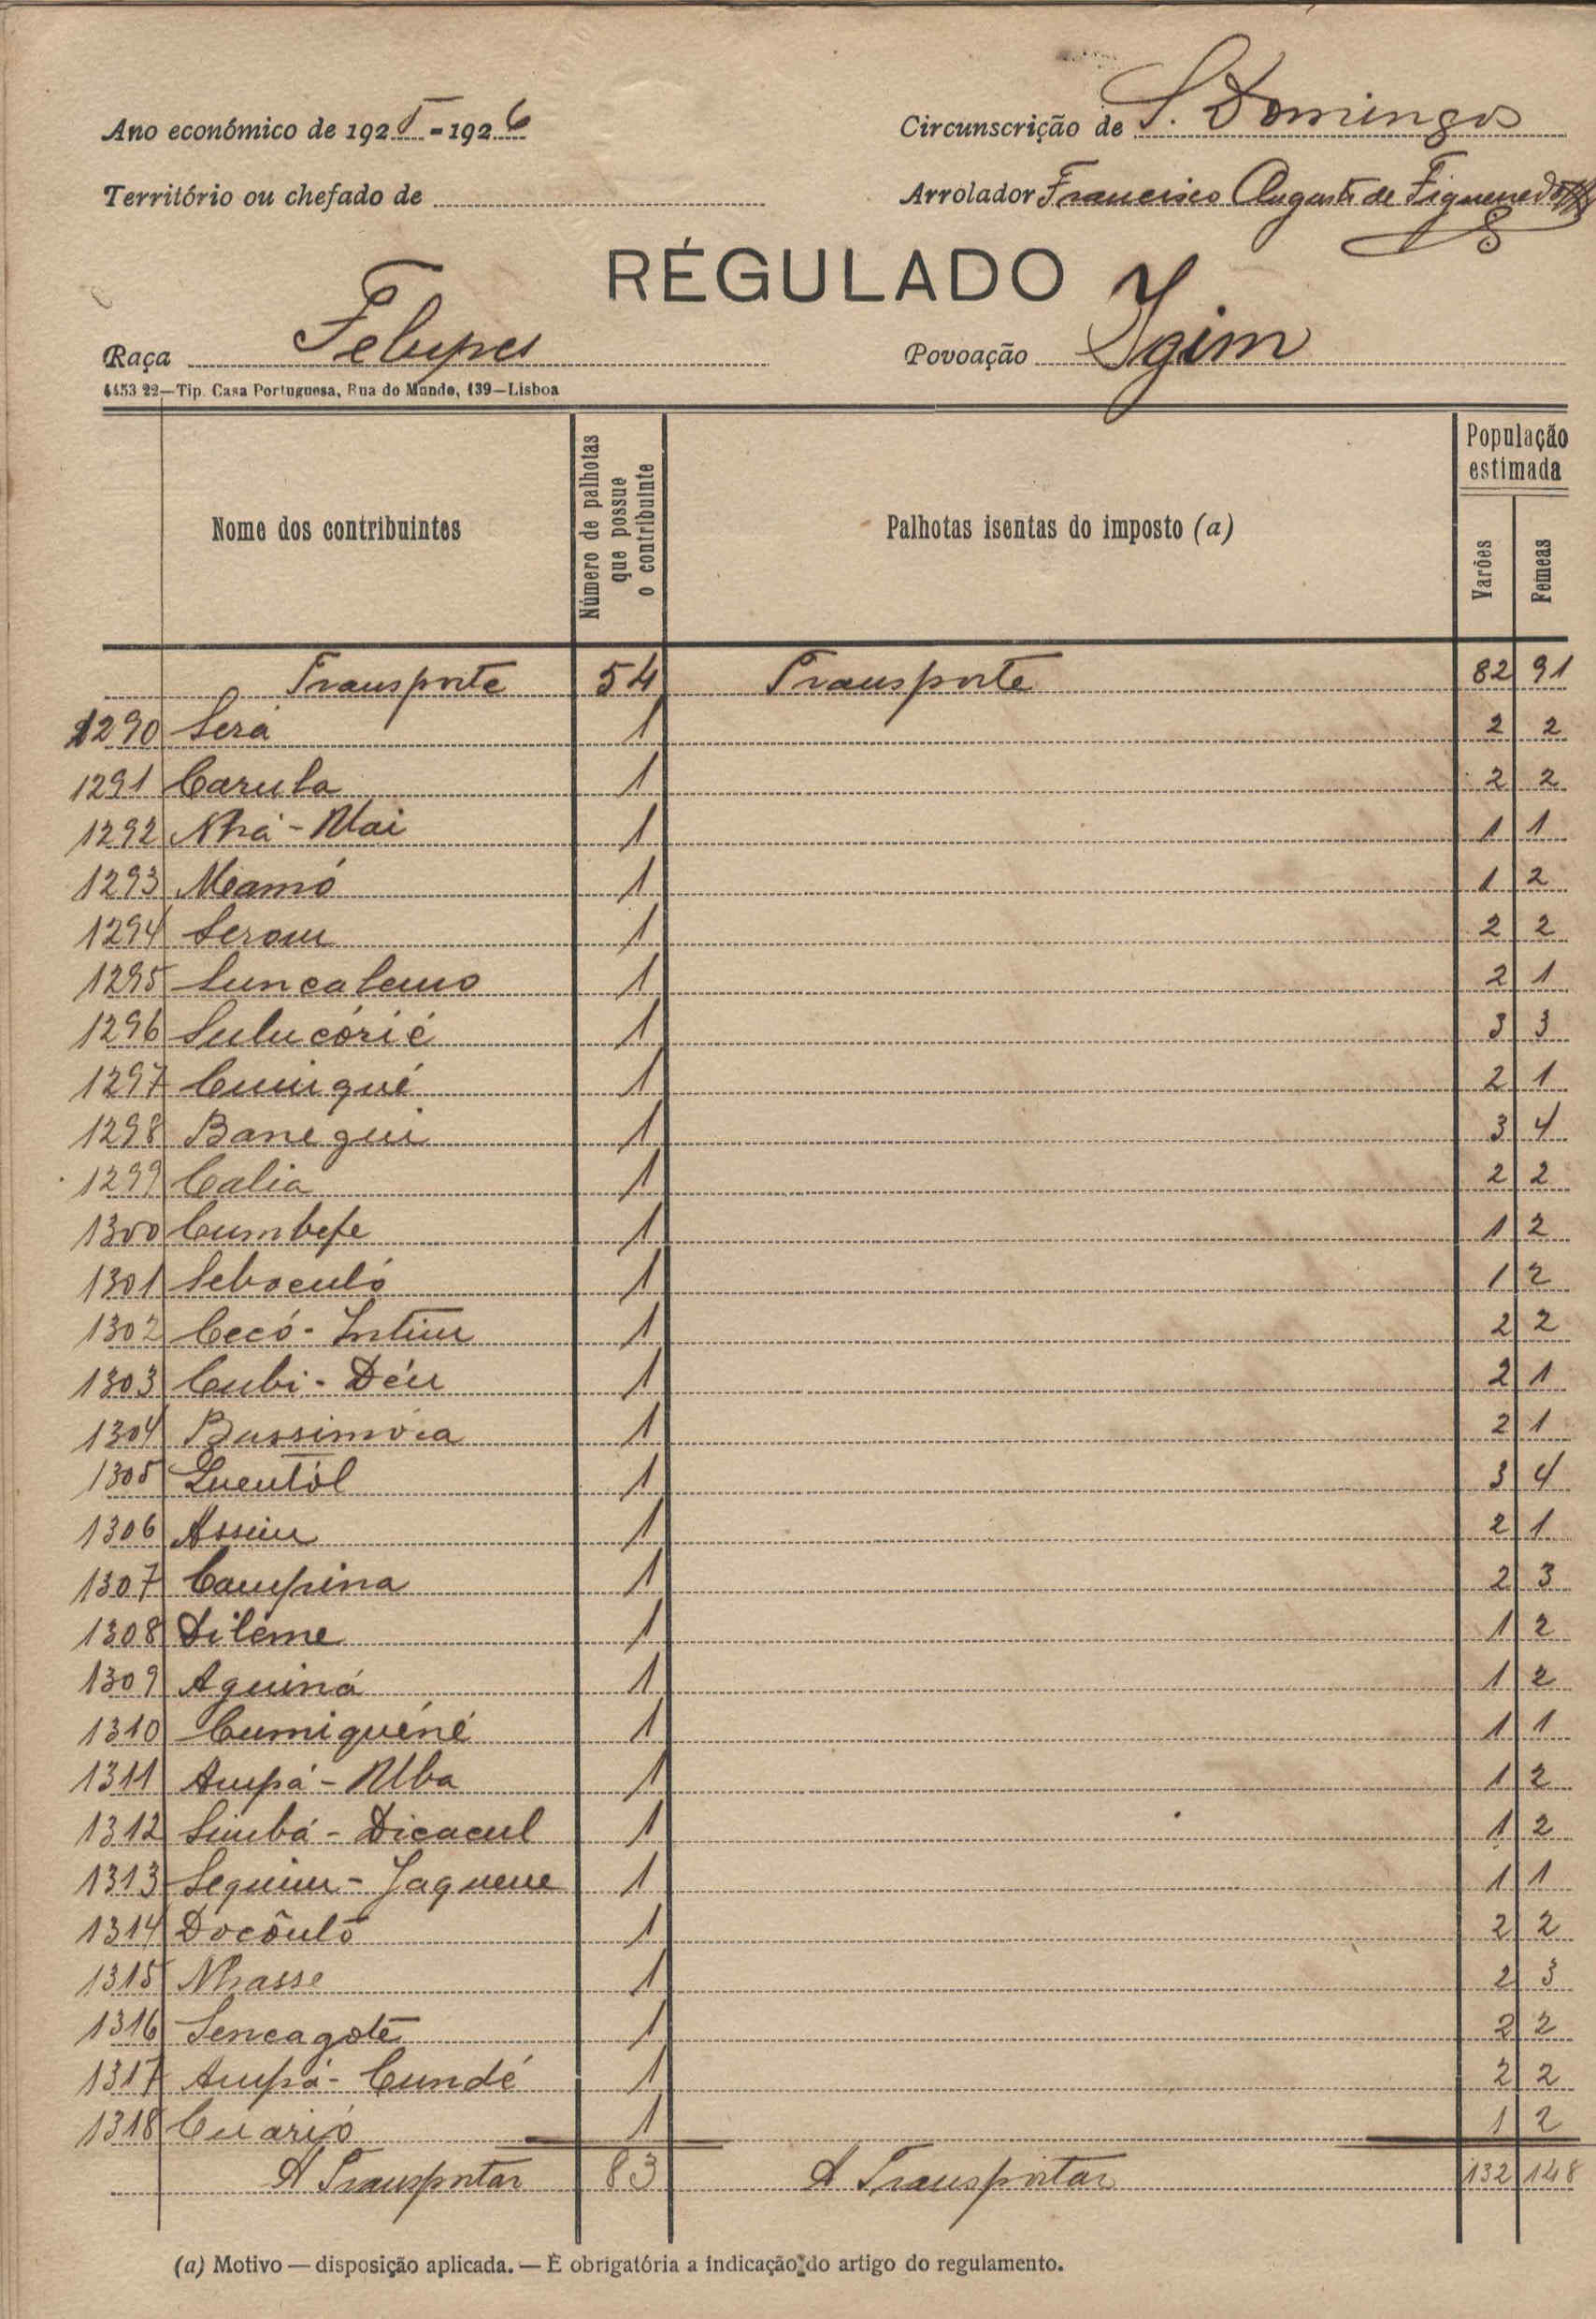 Ano económico de 1925-1926
Circunscrição de S. Domingos
Território ou chefado de
Arrolador Francisco Augusto de Figueredo
RÉGULADO
Raça Felupes
Povoação Igim
4453 22—Tip. Casa Portuguesa, Rua do Mundo, 139—Lisboa
Nome dos contribuintes
Número de palhotas que possue o contribuinte
Palhotas isentas do imposto (a)
População estimada
Varões
Femeas
Transporte 54 Transporte 82 91
1290 Será 1 2 2
1291 Carula 1 2 2
1292 Nhá-Mai 1 1 1
1293 Mamó 1 1 2
1294 Serom 1 2 2
1295 Suncalemo 1 2 1
1296 Sulucórié 1 3 3
1297 Cuniqué 1 2 1
1298 Banegui 1 3 4
1299 Calia 1 2 2
1300 Cumbefe 1 1 2
1301 Seboculó 1 1 2
1302 Cecó-Intim 1 2 2
1303 Cubi-Déu 1 2 1
1304 Bussimóca 1 2 1
1305 Quentól 1 3 4
1306 Assim 1 2 1
1307 Campina 1 2 3
1308 Diléme 1 1 2
1309 Aguiná 1 1 2
1310 Cumiquéné 1 1 1
1311 Ampá-Mba 1 1 2
1312 Simbá-Dicacul 1 1 2
1313 Sequim-Jaquene 1 1 1
1314 Docôuló 1 2 2
1315 Nhasse 1 2 3
1316 Sencagote 1 2 2
1317 Ampá-Cundé 1 2 2
1318 Cuarió 1 1 2
A Transportar 83 A Transportar 132 148
(a) Motivo — disposição aplicada. — É obrigatória a indicação do artigo do regulamento.